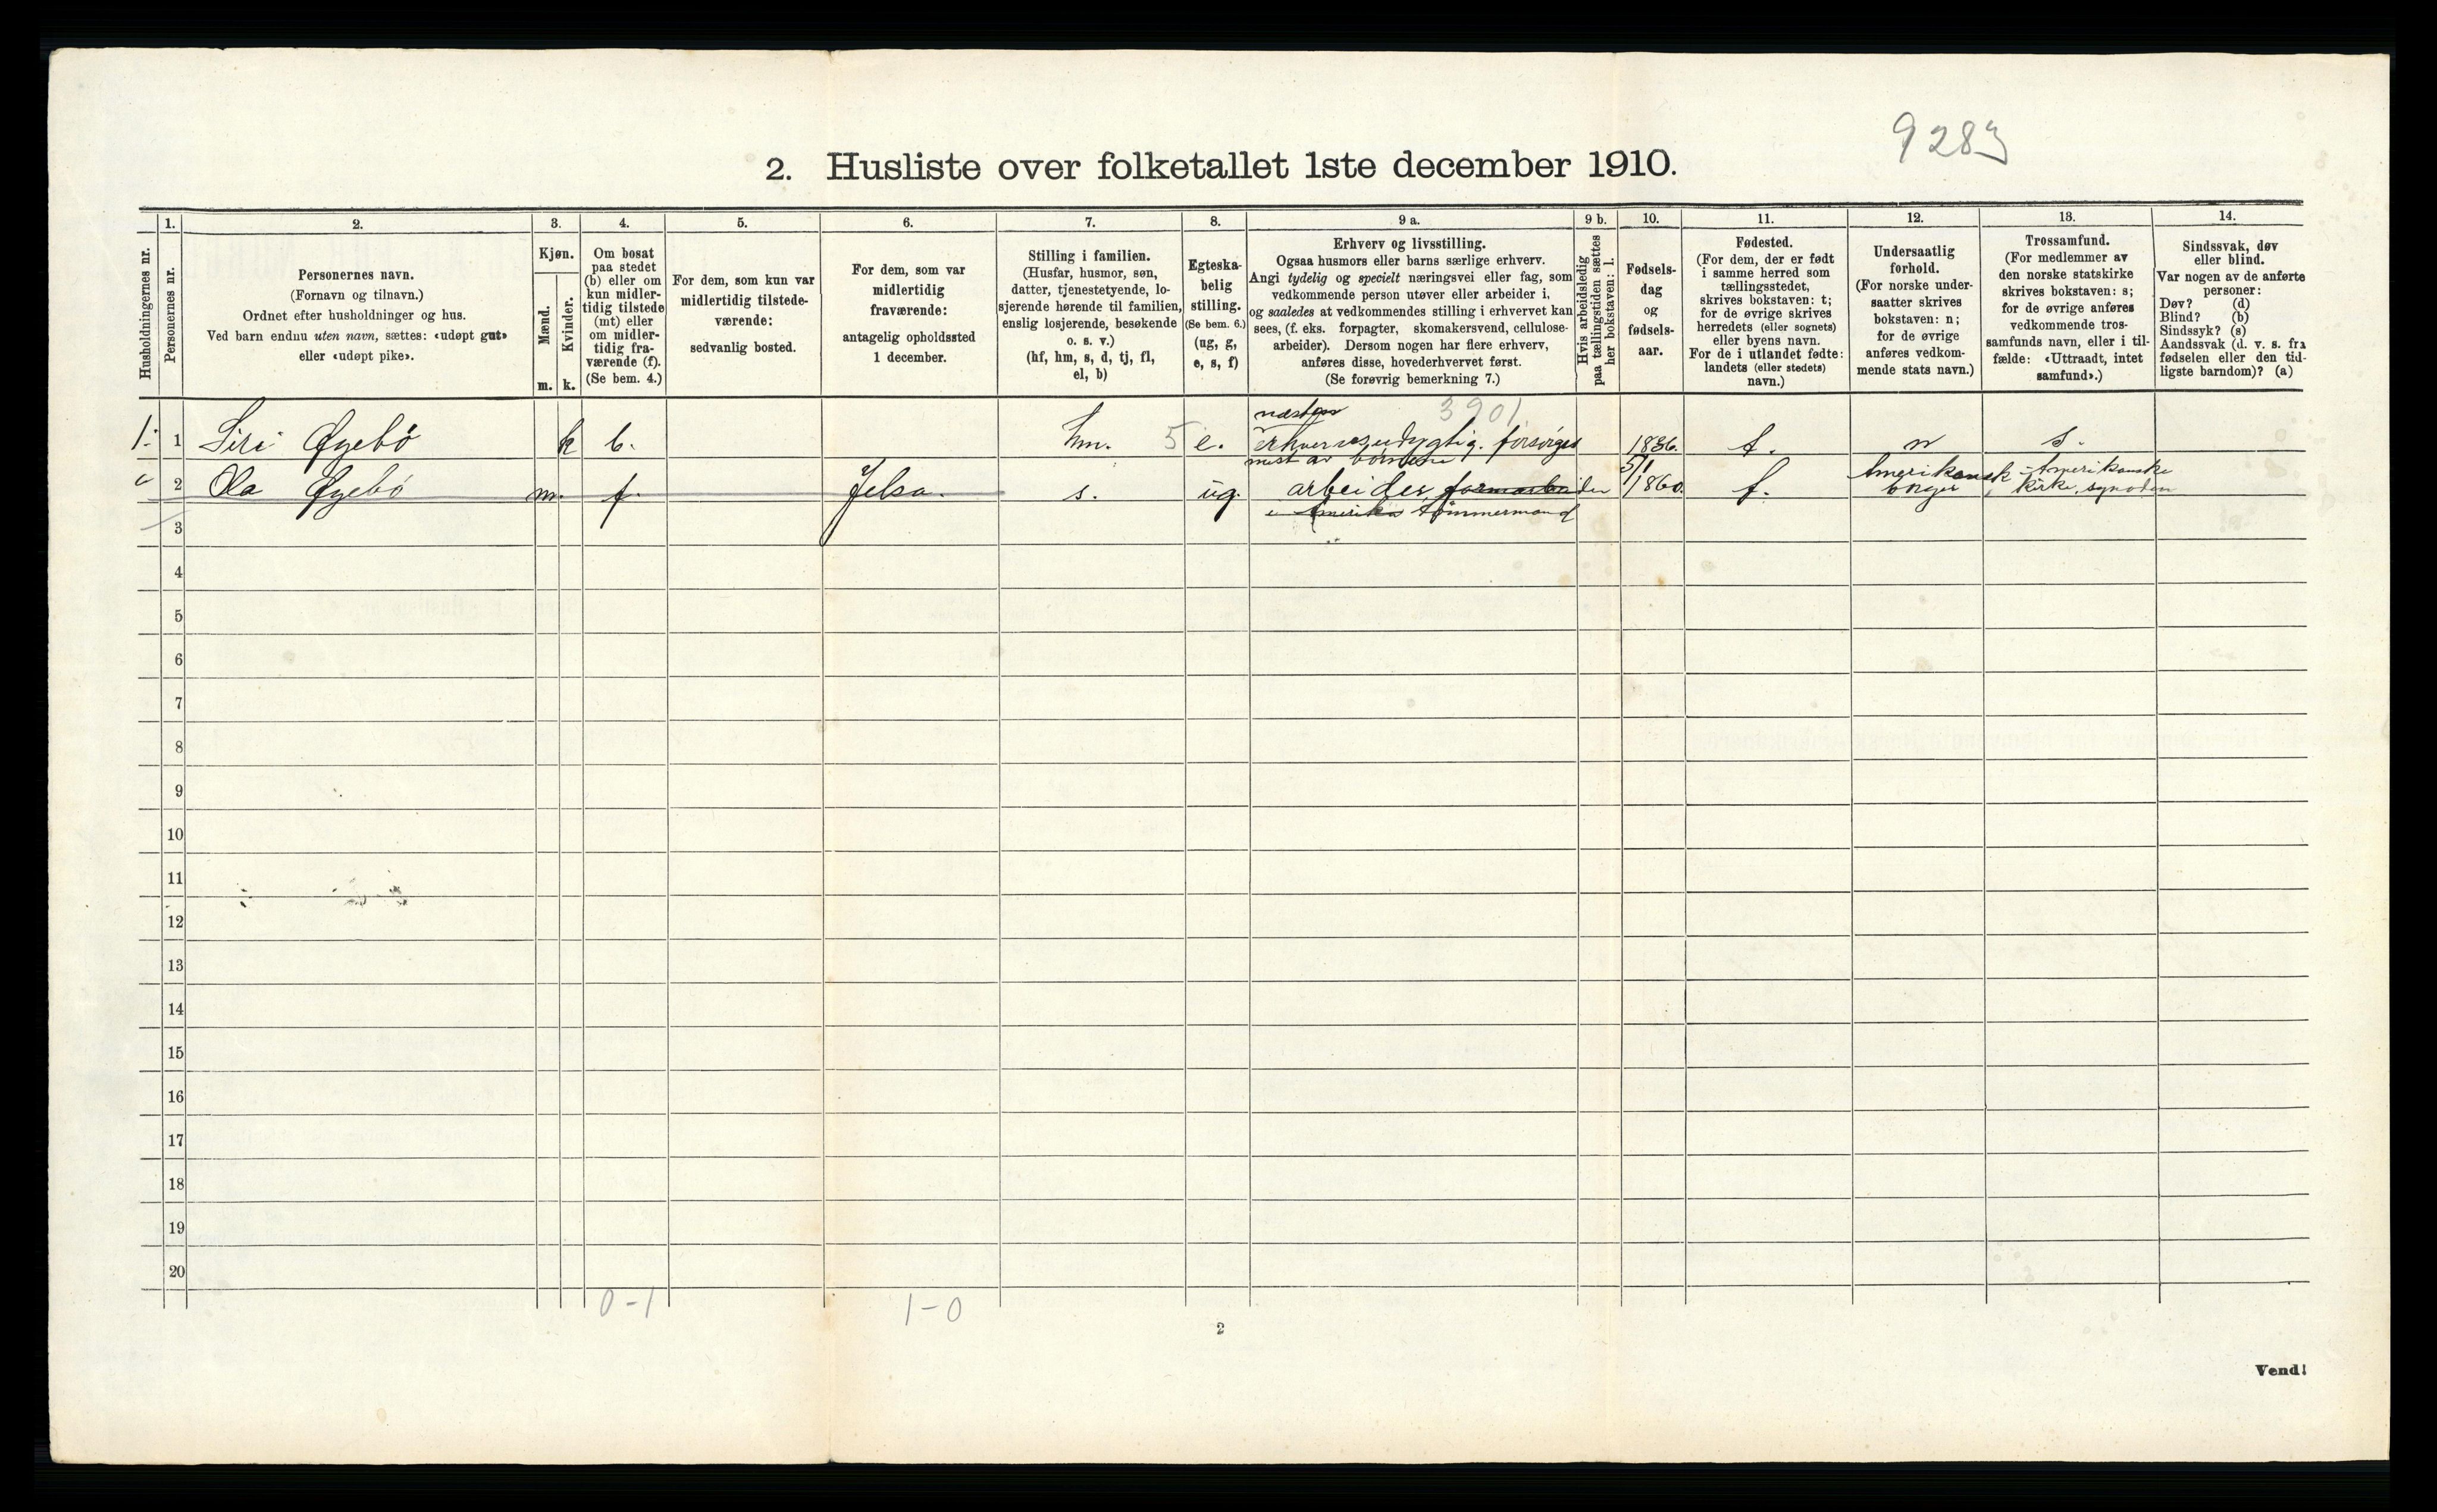 9283
2. Husliste over folketallet 1ste december 1910.
Husholdningernes nr.
1.
Personernes nr.
2.
Personernes navn.
(Fornavn og tilnavn.)
Ordnet efter husholdninger og hus.
Ved barn endnu uten navn, sættes: «udøpt gut»
eller «udøpt pike».
3.
Kjøn.
Mænd.
Kvinder.
m. k.
4.
Om bosat
paa stedet
(b) eller om
kun midler-
tidig tilstede
(mt) eller
om midler-
tidig fra-
værende (f).
(Se bem. 4.)
5.
For dem, som kun var
midlertidig tilstede-
værende:
sedvanlig bosted.
6.
For dem, som var
midlertidig
fraværende:
antagelig opholdssted
1 december.
7.
Stilling i familien.
(Husfar, husmor, søn,
datter, tjenestetyende, lo-
sjerende hørende til familien,
enslig losjerende, besøkende
o. s. v.)
(hf, hm, s, d, tj, fl,
el, b)
8.
Egteska-
belig
stilling.
(Se bem. 6.)
(ug, g,
e, s, f)
9 a.
Erhverv og livsstilling.
Ogsaa husmors eller barns særlige erhverv.
Angi tydelig og specielt næringsvei eller fag, som
vedkommende person utøver eller arbeider i,
og saaledes at vedkommendes stilling i erhvervet kan
sees, (f. eks. forpagter, skomakersvend, cellulose-
arbeider). Dersom nogen har flere erhverv,
anføres disse, hovederhvervet først.
(Se forøvrig bemerkning 7.)
9 b.
Hvis arbeidsledig
paa tællingstiden sættes
her bokstaven: l.
10.
Fødsels-
dag
og
fødsels-
aar.
11.
Fødested.
(For dem, der er født
i samme herred som
tællingsstedet,
skrives bokstaven: t;
for de øvrige skrives
herredets (eller sognets)
eller byens navn.
For de i utlandet fødte:
landets (eller stedets)
navn.)
12.
Undersaatlig
forhold.
(For norske under-
saatter skrives
bokstaven: n;
for de øvrige
anføres vedkom-
mende stats navn.)
13.
Trossamfund.
(For medlemmer av
den norske statskirke
skrives bokstaven: s;
for de øvrige anføres
vedkommende tros-
samfunds navn, eller i til-
fælde: «Uttraadt, intet
samfund».)
14.
Sindssvak, døv
eller blind.
Var nogen av de anførte
personer:
Døv? (d)
Blind? (b)
Sindssyk? (s)
Aandssvak (d. v. s. fra
fødselen eller den tid-
ligste barndom)? (a)
næsten 3901
1. 1 Siri Øyebø k b. hm. 5 e. erhvervsudygtig. forsørges 1836. t. n s.
mest av børnene
2 Ola Øyebø m. f. Jelsa. s. ug. arbeider, farmarbeider 5/1 1860. t. Amerikansk borger Amerikanske kirke, synoden
i Amerika tømmermand
3
4
5
6
7
8
9
10
11
12
13
14
15
16
17
18
19
20
0-1 1-0
2
Vend!